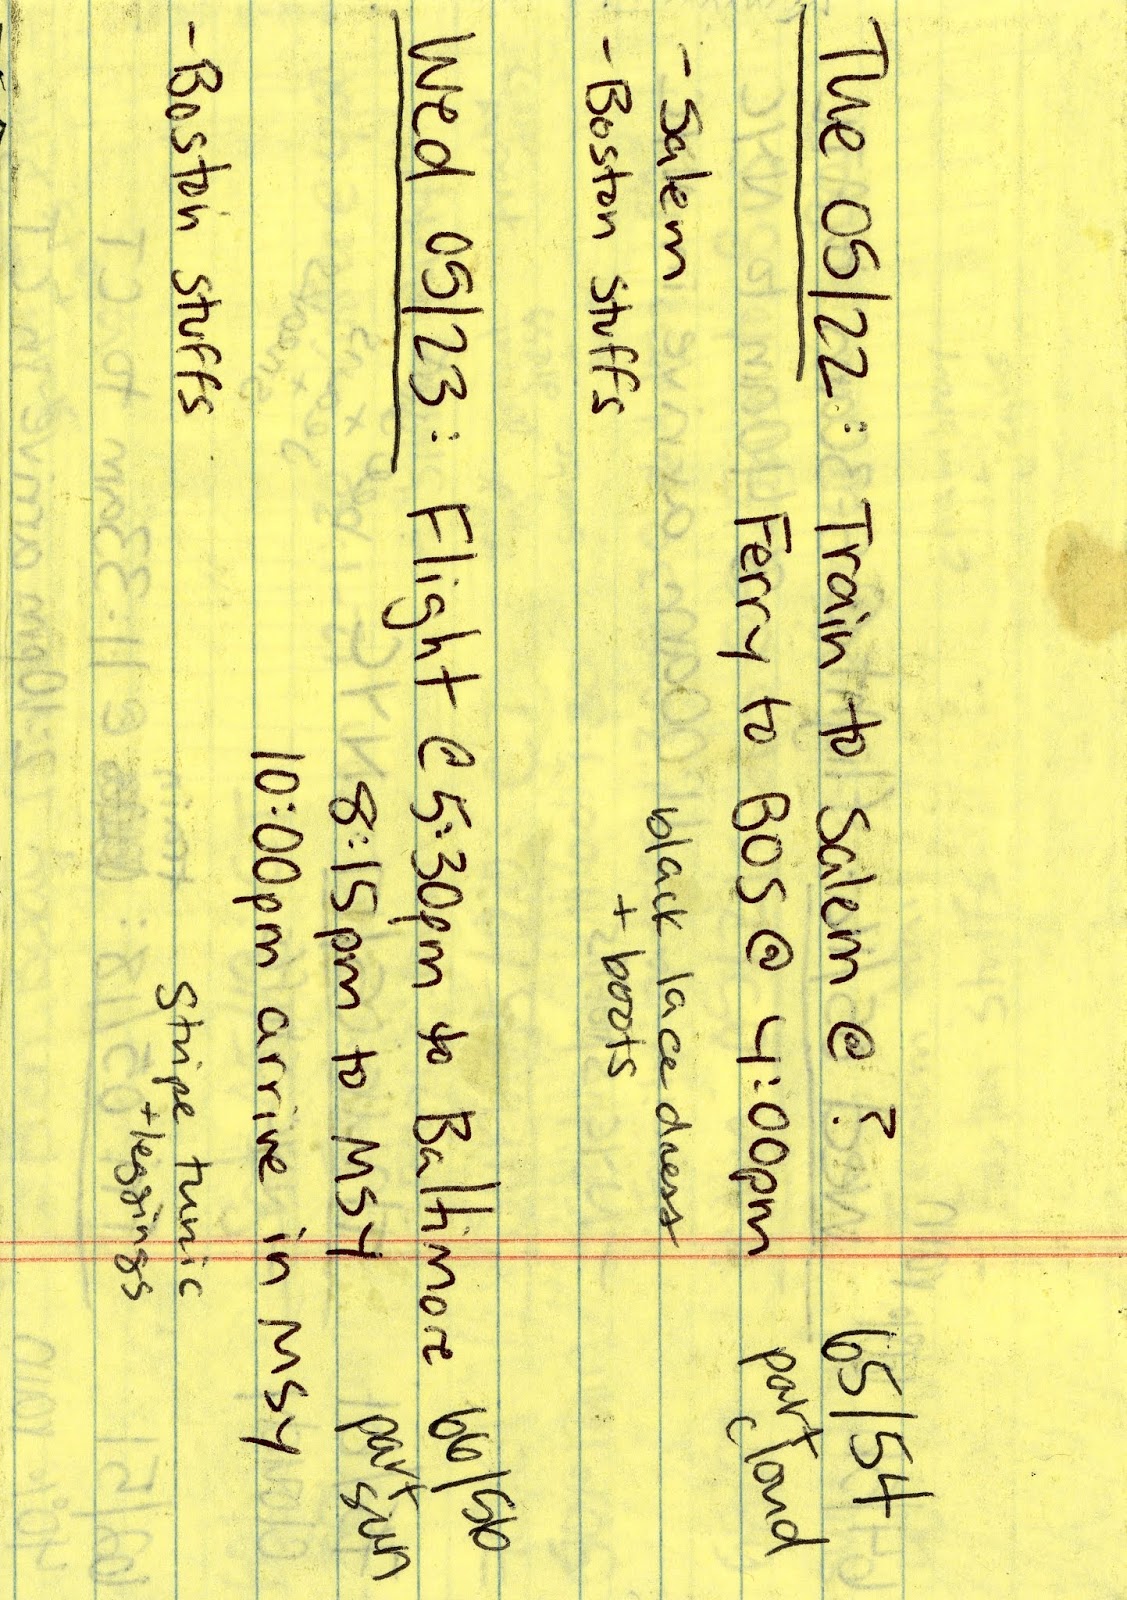 Tue 05/22: Train to Salem @ ? 65/54
Ferry to BOS @ 4:00pm part cloud
- Salem
black lace dress
- Boston stuffs + boots
Wed 05/23: Flight @ 5:30pm to Baltimore 66/56
8:15pm to MSY part sun
10:00pm arrive in MSY
- Boston stuffs stripe tunic
+ leggings